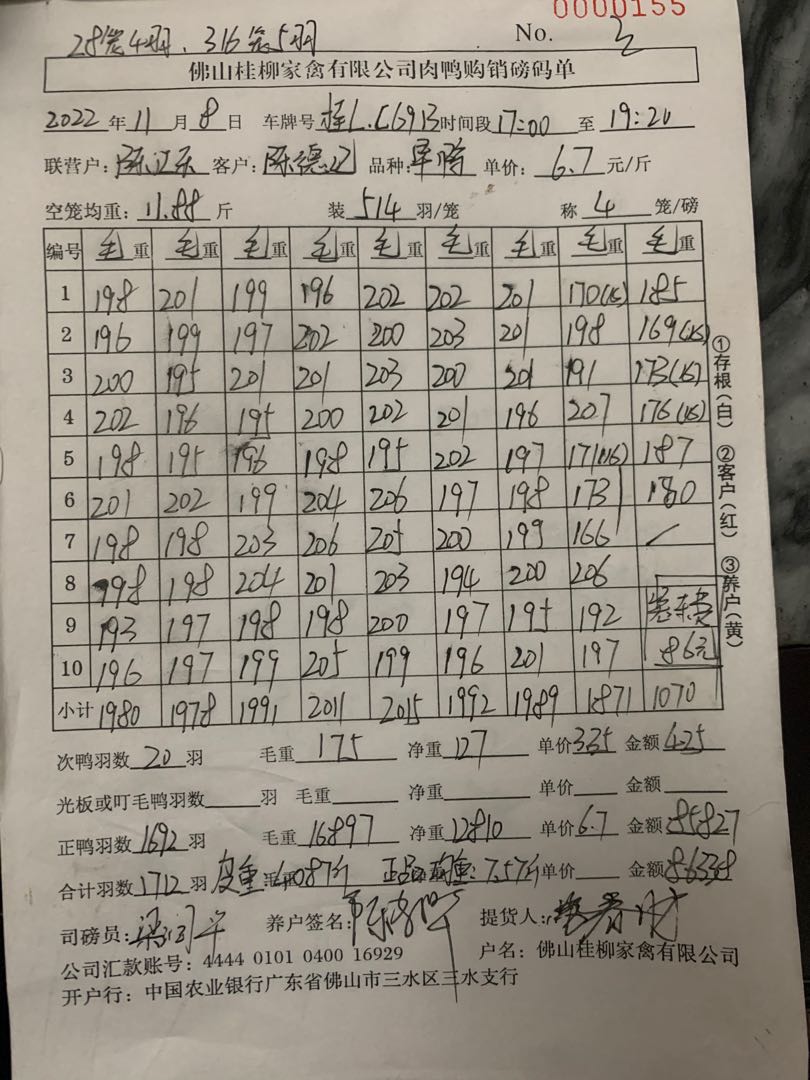 0000155
28笼4羽, 316笼5羽 No. 3
佛山桂柳家禽有限公司肉鸭购销磅码单
2022 年 11 月 8 日 车牌号 桂L.C6913 时间段 17:00 至 19:20
联营户: 客户: 陈德 品种: 单价: 6.7 元/斤
空笼均重: 11.88 斤 装 5/4 羽/笼 称 4 笼/磅
编号 毛重 毛重 毛重 毛重 毛重 毛重 毛重 毛重 毛重
1 198 201 199 196 202 202 201 170 185
2 196 199 197 202 200 203 201 198 169
3 200 195 201 201 203 200 201 191 173
4 202 196 195 200 202 201 196 207 176
5 198 195 196 198 195 202 197 171 187
6 201 202 199 204 206 197 198 173 180
7 198 198 203 206 205 200 199 166
8 198 198 204 201 203 194 200 206
9 193 197 198 198 200 197 195 192
10 196 197 199 205 199 196 201 197 86元
小计 1980 1978 1991 2011 2015 1992 1989 1871 1070
次鸭羽数 20 羽 毛重 175 净重 127 单价 3.35 金额 425
光板或叮毛鸭羽数 羽 毛重 净重 单价 金额
正鸭羽数 1692 羽 毛重 16897 净重 12810 单价 6.7 金额 85827
合计羽数 1712 羽 皮重: 4087斤 正品均重: 7.57斤 单价 金额 86338
司磅员: 养户签名: 提货人:
公司汇款账号: 4444 0101 0400 16929 户名: 佛山桂柳家禽有限公司
开户行: 中国农业银行广东省佛山市三水区三水支行
①存根(白) ②客户(红) ③养户(黄)